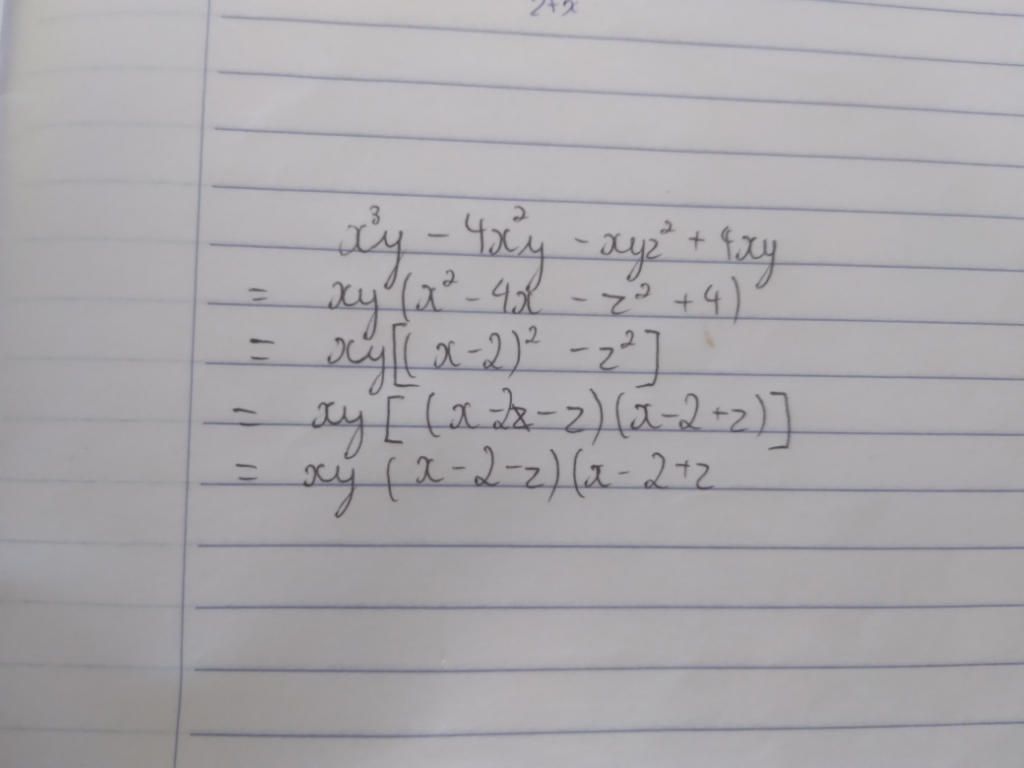 2+x
x³y - 4x²y - xyz² + 4xy
= xy(x² - 4x - z² + 4)
= xy[(x-2)² - z²]
= xy[(x-2-z)(x-2+z)]
= xy(x-2-z)(x-2+z